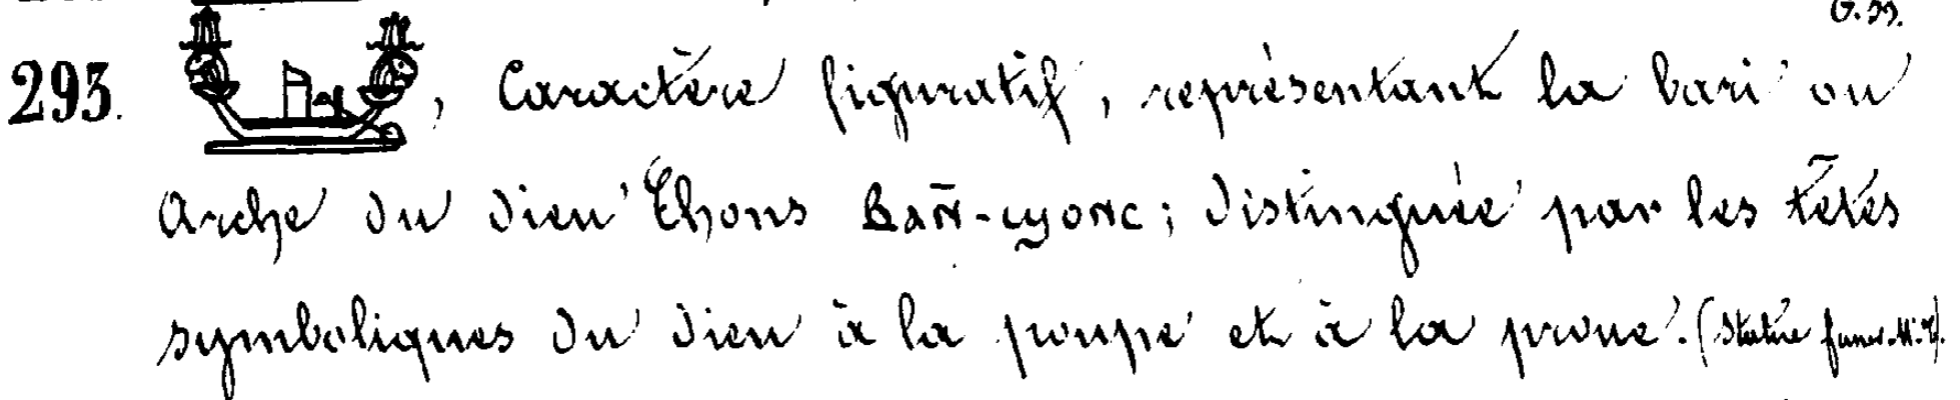 293. , Caractère figuratif, représentant la bari ou
Arche du dieu Chons Ⲃⲁⲣⲓ-ϣⲟⲛⲥ; distinguée par les têtes
symboliques du dieu à la poupe et à la proue. (Statue funer. M. R.)